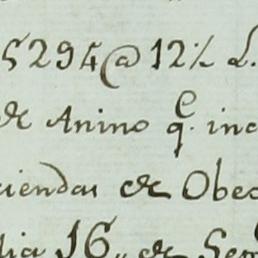 5294 @ 12 ½ L.
de Anino q.^e inc
ciendas de Obec
dia 16,, de Sem